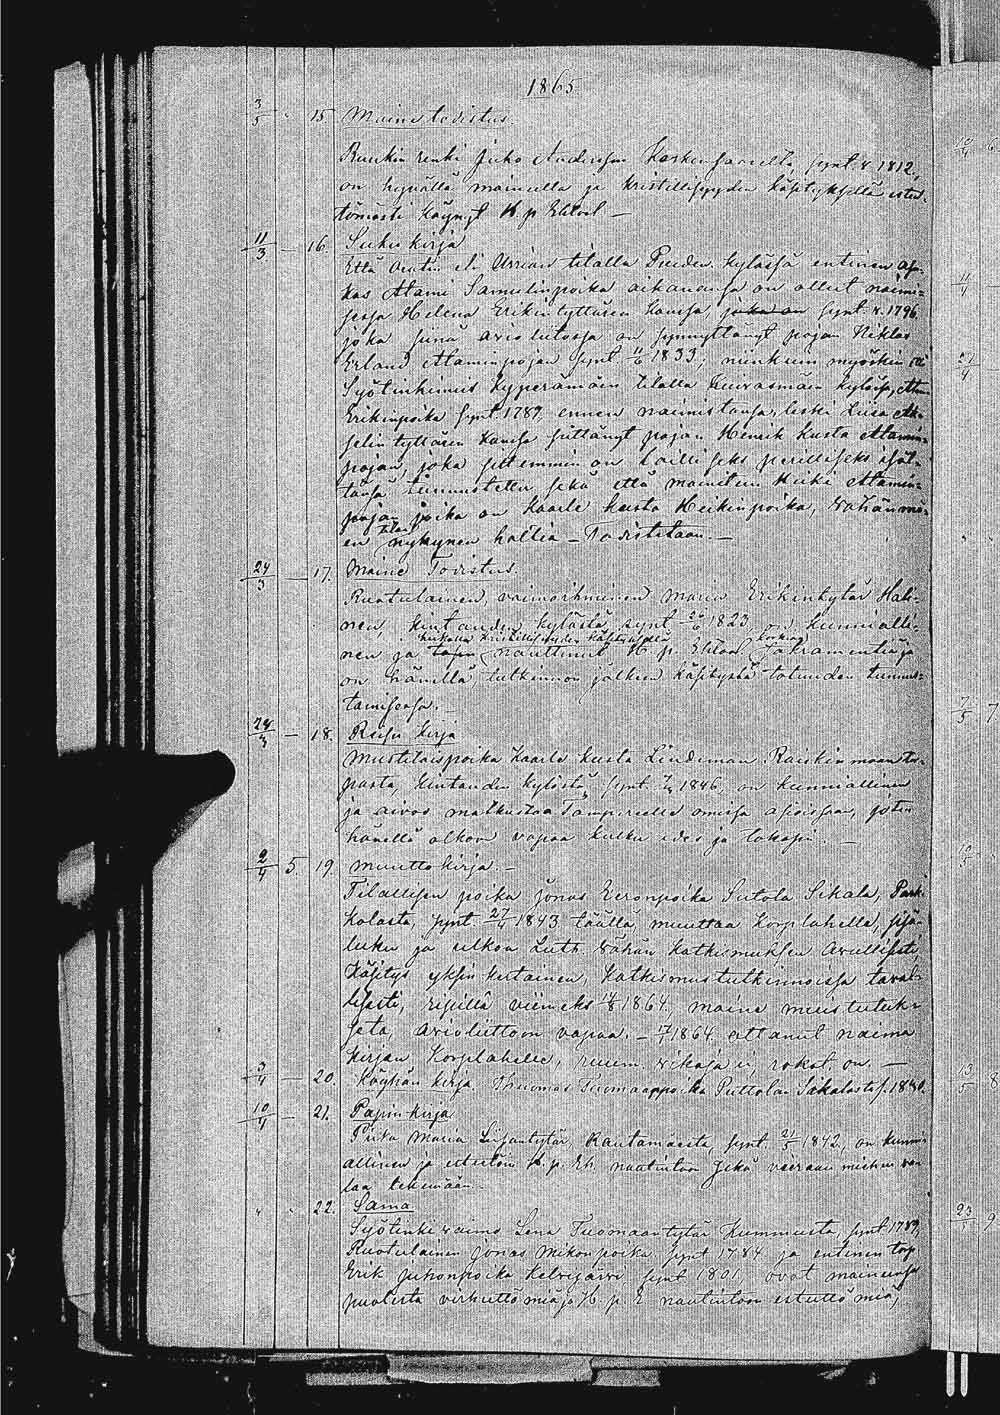 1865
3/5 " 15 Maine todistus
Ruukin renki Juho Andersson synt. v. 1812,
on hyvällä maineella ja kristillisyyden käsityksellä estet-
tömästi käynyt H. p. Ehtool —
11/3 — 16. Suku kirja
Että eli tilalla kylässä entinen asu-
kas Atami Samulinpoika aikanansa on ollut naimi-
sessa Helena Erikintyttären kanssa, joka on synt v. 1796,
joka sinä avioliitossa on synnyttänyt pojan Niklas
Erland Ataminpojan synt 11/6 1833; niinkuin myöskin että
Syötinkimus Hyperämäen tilalla kylässä, Atam
Erikinpoika synt. 1789, ennen naimistansa, leski Liisa Ak-
selin tyttären kanssa siittänyt pojan Henrik Kusta Atamin-
pojan, joka sittemmin on lailliseks perilliseks isäl-
tänsä tunnustettu sekä että mainitun Heiki Atamin-
pojan poika on Kaarle Kusta Heikinpoika, Vähänmä-
en tilan nykynen haltia — Todistetaan. —
24/3 — 17. Maine Todistus.
Ruotulainen, vaimoihminen Maria Erikintytär Hali-
nen, Kintauden kylästä, synt 20/6 1823 on kunnialli-
nen ja hyvällä kristillisyyden käsityksellä nauttinut H. p. Ehtoo Sakramenttia ja
on hänellä tutkinnon jälkeen käsitystä totuuden tunnus-
tamisessa. —
24/3 — 18. Reissu kirja
Mustilaispoika Kaarle Kusta Lindeman Ruukinmaan to-
pasta, Kintauden kylästä, synt. 1846, on kunniallinen
ja aivoo matkustaa Tampereelle omissa asioissaan, joten
hänellä olkoon vapaa kulku edes ja takasin. —
2/4 5. 19. Muutto kirja. —
Tilallisen poika Jonas Eeronpoika Sutola Sikala,
kolasta, synt 27/4 1843 täällä, muuttaa Korpilahdelle, sisä-
luku ja ulkoa Luth. Vähän Katkismuksen Avullisesti,
Käsitys yksin kertainen, Katkismustutkinnoissa taval-
lisesti, ripillä viimeks 1864, maine muistutuk-
seta, avioliittoon vapaa. — 1864 ottanut naima
kirjan Korpilahdelle, ruum. vikoja ei, rokot. on. —
3/4 — 20. Köyhän kirja Thuomas Tuomaappoika Puttola Sakalasta s. 1830.
10/4 — 21. Papin-kirja
Piika Maria Liisantytär Rautamaesta, synt. 21/5 1842, on kunni-
allinen ja estetöin H. p. Eh. nautintoon Sekä vieraan miehen va-
laa tekemään. —
" " 22. Sama
Syötinki vaimo Lena Tuomaantytär Kummusta, synt 1789,
Ruotulainen Jonas Mikonpoika synt 1784 ja entinen torp
Erik Juhonpoika Kelvejärvi synt 1801, ovat maineensa
puolesta virhettömiä ja H. p. E. nautintoon estettömiä,